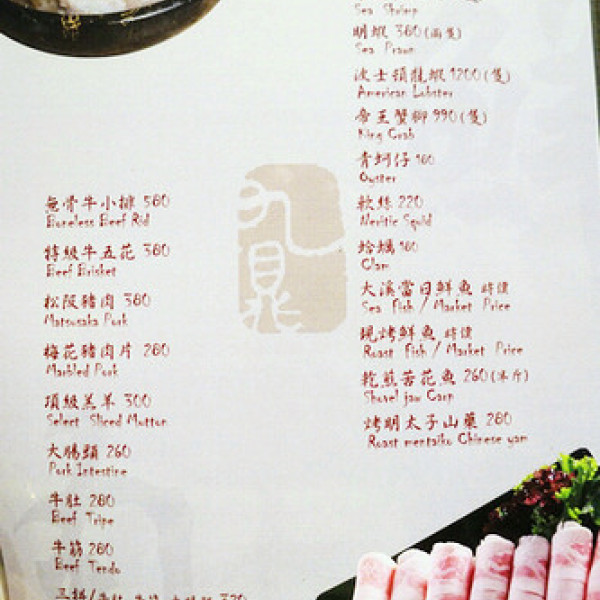 無骨牛小排 580
Boneless Beef Rid
特級牛五花 380
Beef Brisket
松阪豬肉 380
Matsusaka Pork
梅花豬肉片 280
Marbled Pork
頂級羔羊 300
Select Sliced Mutton
大腸頭 260
Pork Intestine
牛肚 280
Beef Tripe
牛筋 280
Beef Tendo
九鼎
Sea Shrimp
明蝦 380(兩隻)
Sea Prawn
波士頓龍蝦 1200(隻)
American Lobster
帝王蟹腳 990(隻)
King Crab
青蚵仔 180
Oyster
軟絲 220
Neritic Squid
蛤蠣 180
Clam
大溪當日鮮魚 時價
Sea Fish / Market Price
現烤鮮魚 時價
Roast Fish / Market Price
乾煎苦花魚 260(半斤)
Shovel jaw Carp
烤明太子山藥 280
Roast mentaiko Chinese yam